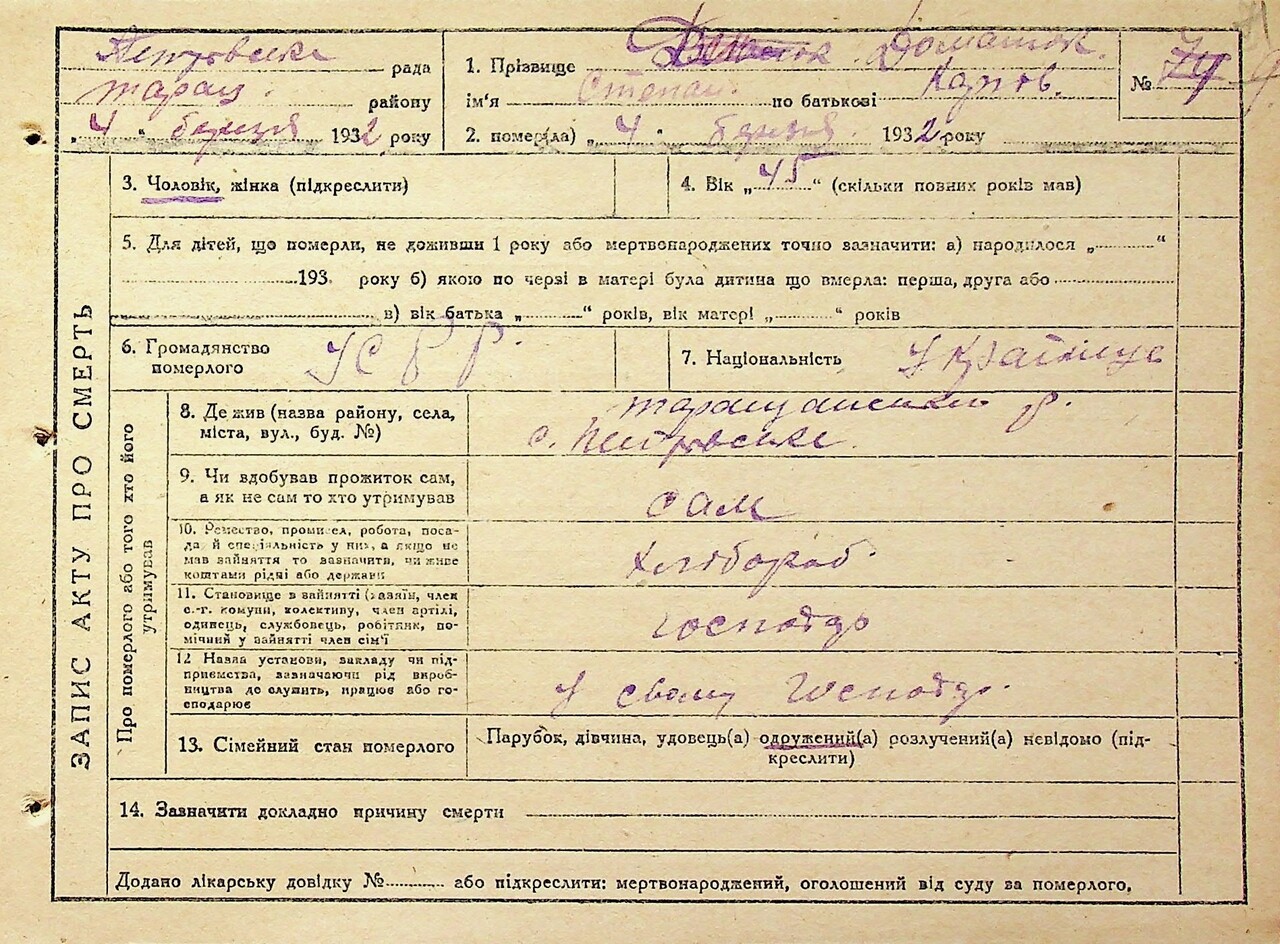 Петровська рада
тaращ. району
„4“ березня 1932 року
1. Прізвище Доматюк
ім'я Степан по батькові Карпов.
2. помер(ла) „4“ березня 1932 року
№
ЗАПИС АКТУ ПРО СМЕРТЬ
3. Чоловік, жінка (підкреслити)
4. Вік „45“ (скільки повних років мав)
5. Для дітей, що померли, не доживши 1 року або мертвонароджених точно зазначити: а) народилося „............“
............193 року б) якою по черзі в матері була дитина що вмерла: перша, друга або............
............в) вік батька „............“ років, вік матері „............“ років
6. Громадянство
померлого
УСРР.
7. Національність Українец
Про померлого або того хто його
утримував
8. Де жив (назва району, села,
міста, вул., буд. №)
таращанський р.
с. Петровське.
9. Чи вдобував прожиток сам,
а як не сам то хто утримував
сам
10. Ремество, промисел, робота, поса-
да й спеціяльність у них, а якщо не
мав зайняття то зазначити, чи живе
коштами рідні або держави
Хлібороб.
11. Становище в зайнятті (хазяїн, член
с.-г. комуни, колективу, член артілі,
одинець, службовець, робітник, по-
мічний у зайнятті член сім'ї
господар
12 Назва установи, закладу чи під-
приємства, зазначаючи рід вироб-
ництва де служить, працює або го-
сподарює
у свому господар.
13. Сімейний стан померлого
Парубок, дівчина, удовець(а) одружений(а) розлучений(а) невідомо (під-
креслити)
14. Зазначити докладно причину смерти
Додано лікарську довідку №............ або підкреслити: мертвонароджений, оголошений від суду за померлого,